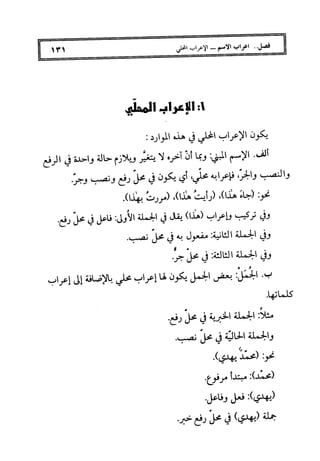 فصل.. اعراب الاسم ــ الإعراب المحلي
١٣١
١: الإعراب المحلّي
يكون الإعراب المحلي في هذه الموارد:
ألف. الإسم المبني: وبما أنّ آخره لا يتغيّر ويلازم حالة واحدة في الرفع
والنصب والجرّ، فإعرابه محلّي، أي يكون في محلّ رفع ونصب وجرّ.
نحو: (جاءَ هذا)، (رأيتُ هذا)، (مررت بهذا).
وفي تركيب وإعراب (هذا) يقل في الجملة الأولى: فاعل في محلّ رفع.
وفي الجملة الثانية: مفعول به في محلّ نصب.
وفي الجملة الثالثة: في محلّ جرٌّ.
ب. الجُمَلُ: بعض الجمل يكون لها إعراب محلي بالإضافة إلى إعراب
كلماتها.
مثلاً: الجملة الخبرية في محلّ رفع.
والجملة الحاليّة في محلّ نصب.
نحو: (محمّدٌ يهدي).
(محمّد): مبتدأ مرفوع.
(يهدي): فعل وفاعل.
جملة (يهدي) في محلّ رفع خبر.